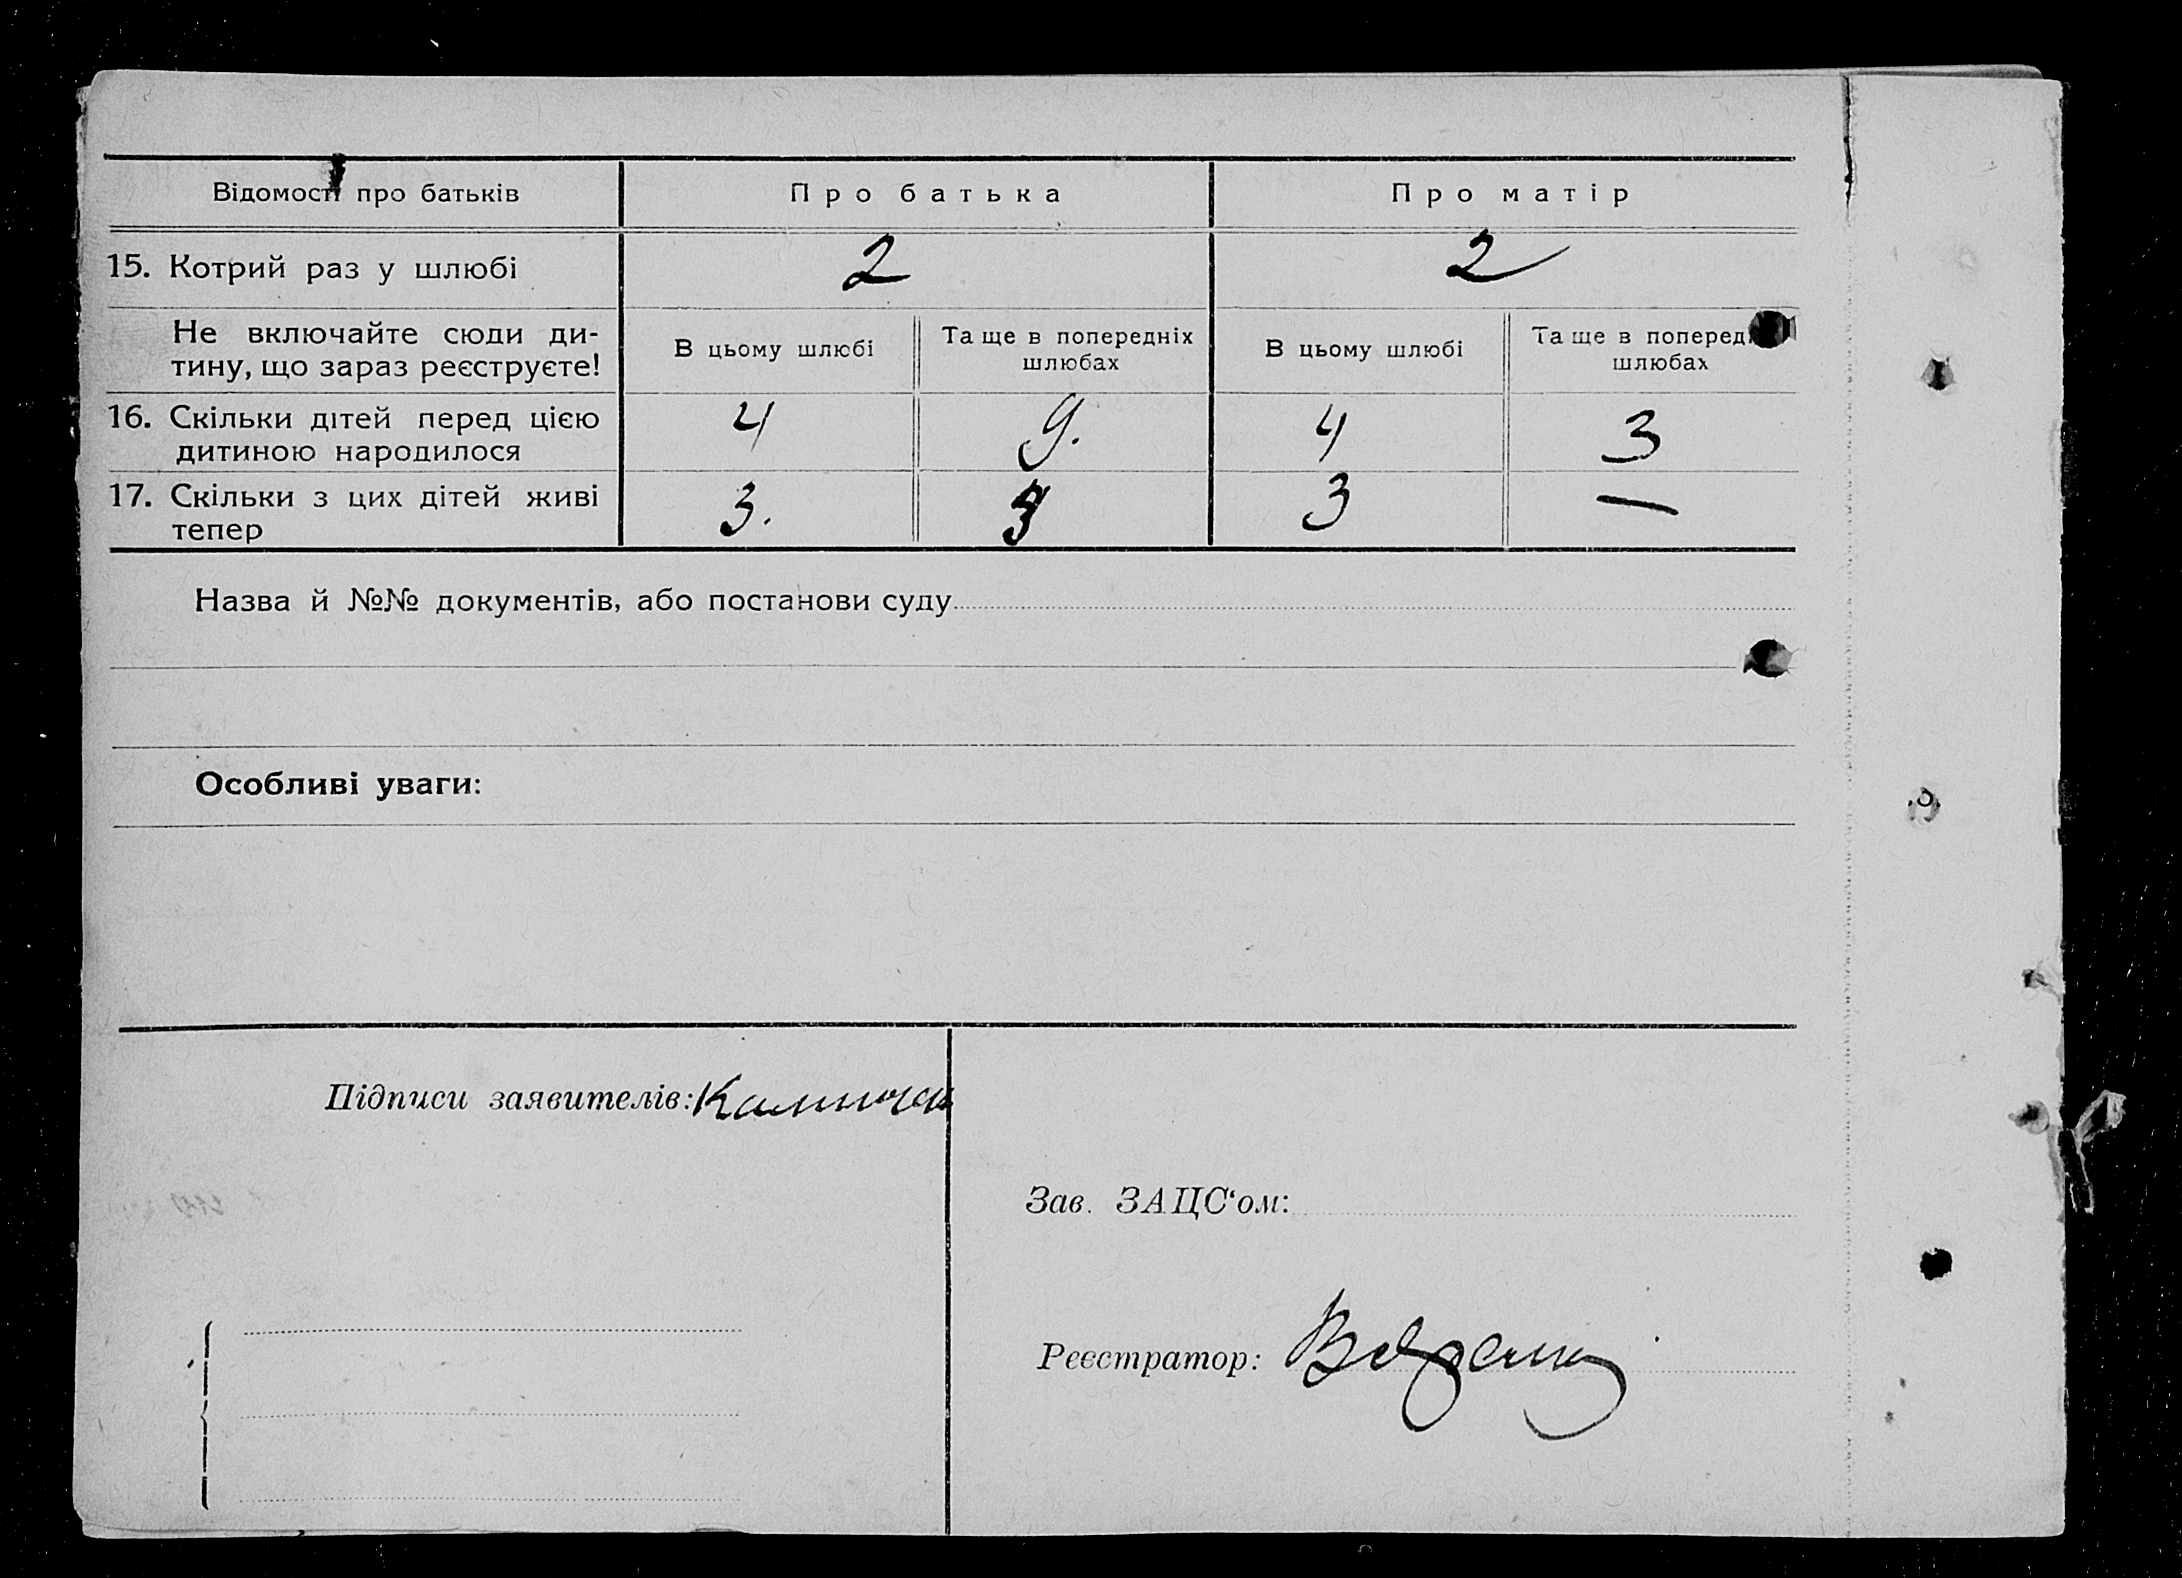 Відомості про батьків
Про батька
Про матір
15. Котрий раз у шлюбі
2
2
Не включайте сюди ди-
тину, що зараз реєструєте!
В цьому шлюбі
Та ще в попередніх
шлюбах
В цьому шлюбі
Та ще в поперед
шлюбах
16. Скільки дітей перед цією
дитиною народилося
4
9.
4
3
17. Скільки з цих дітей живі
тепер
3.
3
—
Назва й №№ документів, або постанови суду
Особливі уваги:
Підписи заявителів:
Зав. ЗАЦС‘ом:
Реєстратор: